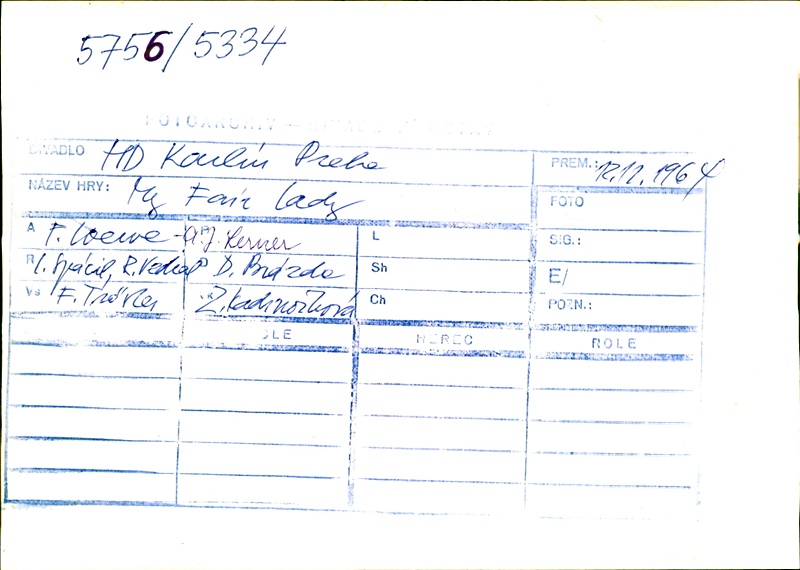 5756/5334
FOTOARCHIV –
DIVADLO HD Karlín Praha PREM.: 12.12.1964
NÁZEV HRY: My Fair Lady FOTO
A F. Loewe - A. J. Lerner L SIG.:
R I. Spáčil, R. Vedral P D. Brázda Sh E/
Vs F. Tröster Z. Kadrnožková Ch POZN.:
HEREC ROLE